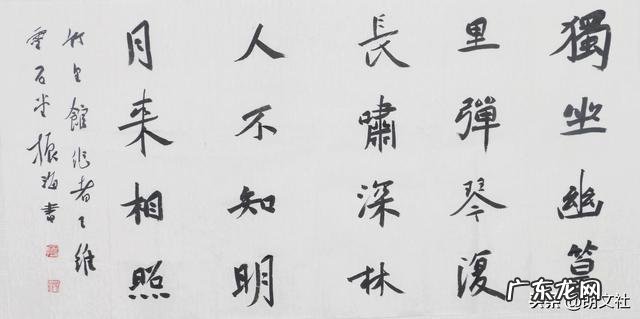 獨坐幽篁
里彈琴復
長嘯深林
人不知明
月来相照
竹里館作者王維
雲石堂振海書
头条@朗文社
广东龙网